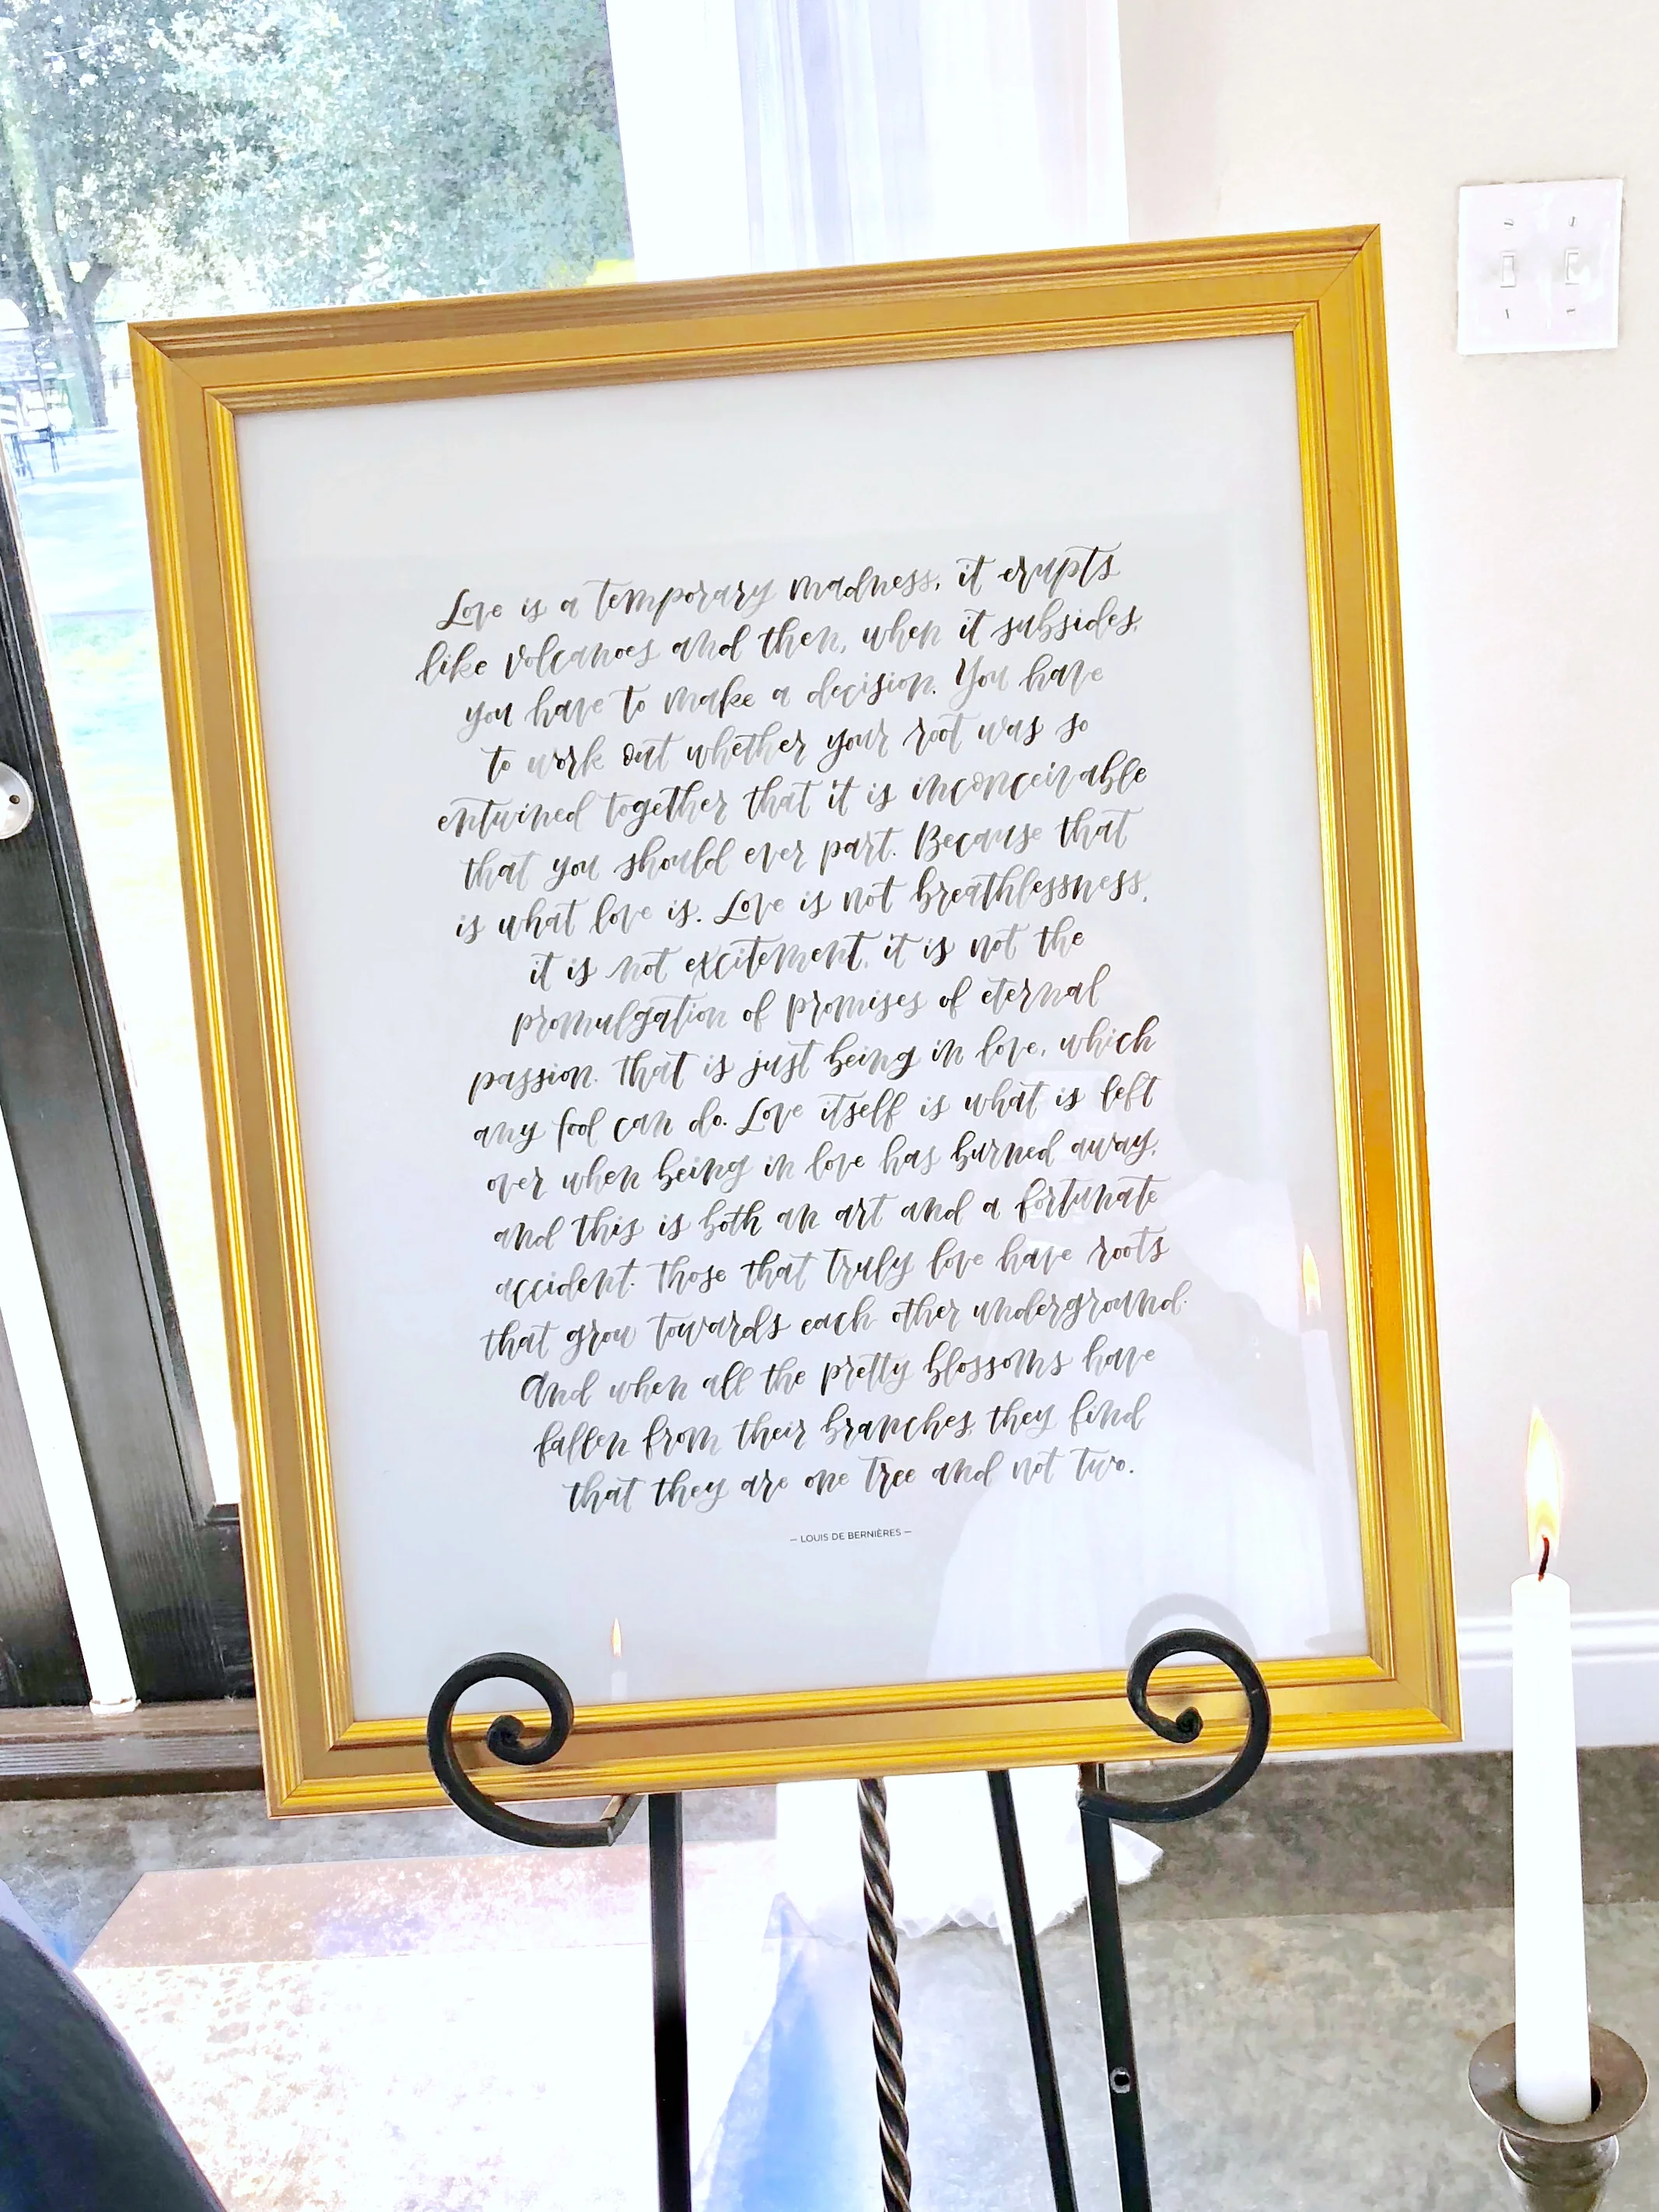 Love is a temporary madness, it erupts
like volcanoes and then, when it subsides,
you have to make a decision. You have
to work out whether your root was so
entwined together that it is inconceivable
that you should ever part. Because that
is what love is. Love is not breathlessness,
it is not excitement, it is not the
promulgation of promises of eternal
passion. That is just being in love, which
any fool can do. Love itself is what is left
over when being in love has burned away,
and this is both an art and a fortunate
accident. Those that truly love have roots
that grow towards each other underground.
And when all the pretty blossoms have
fallen from their branches, they find
that they are one tree and not two.
— LOUIS DE BERNIÈRES —